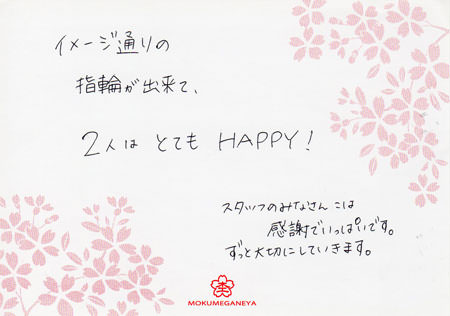 イメージ通りの
指輪が出来て、
2人は とても HAPPY!
スタッフのみなさんには
感謝でいっぱいです。
ずっと大切にしていきます。
MOKUMEGANEYA